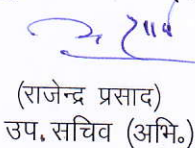 (राजेन्द्र प्रसाद)
उप. सचिव (अभि०)